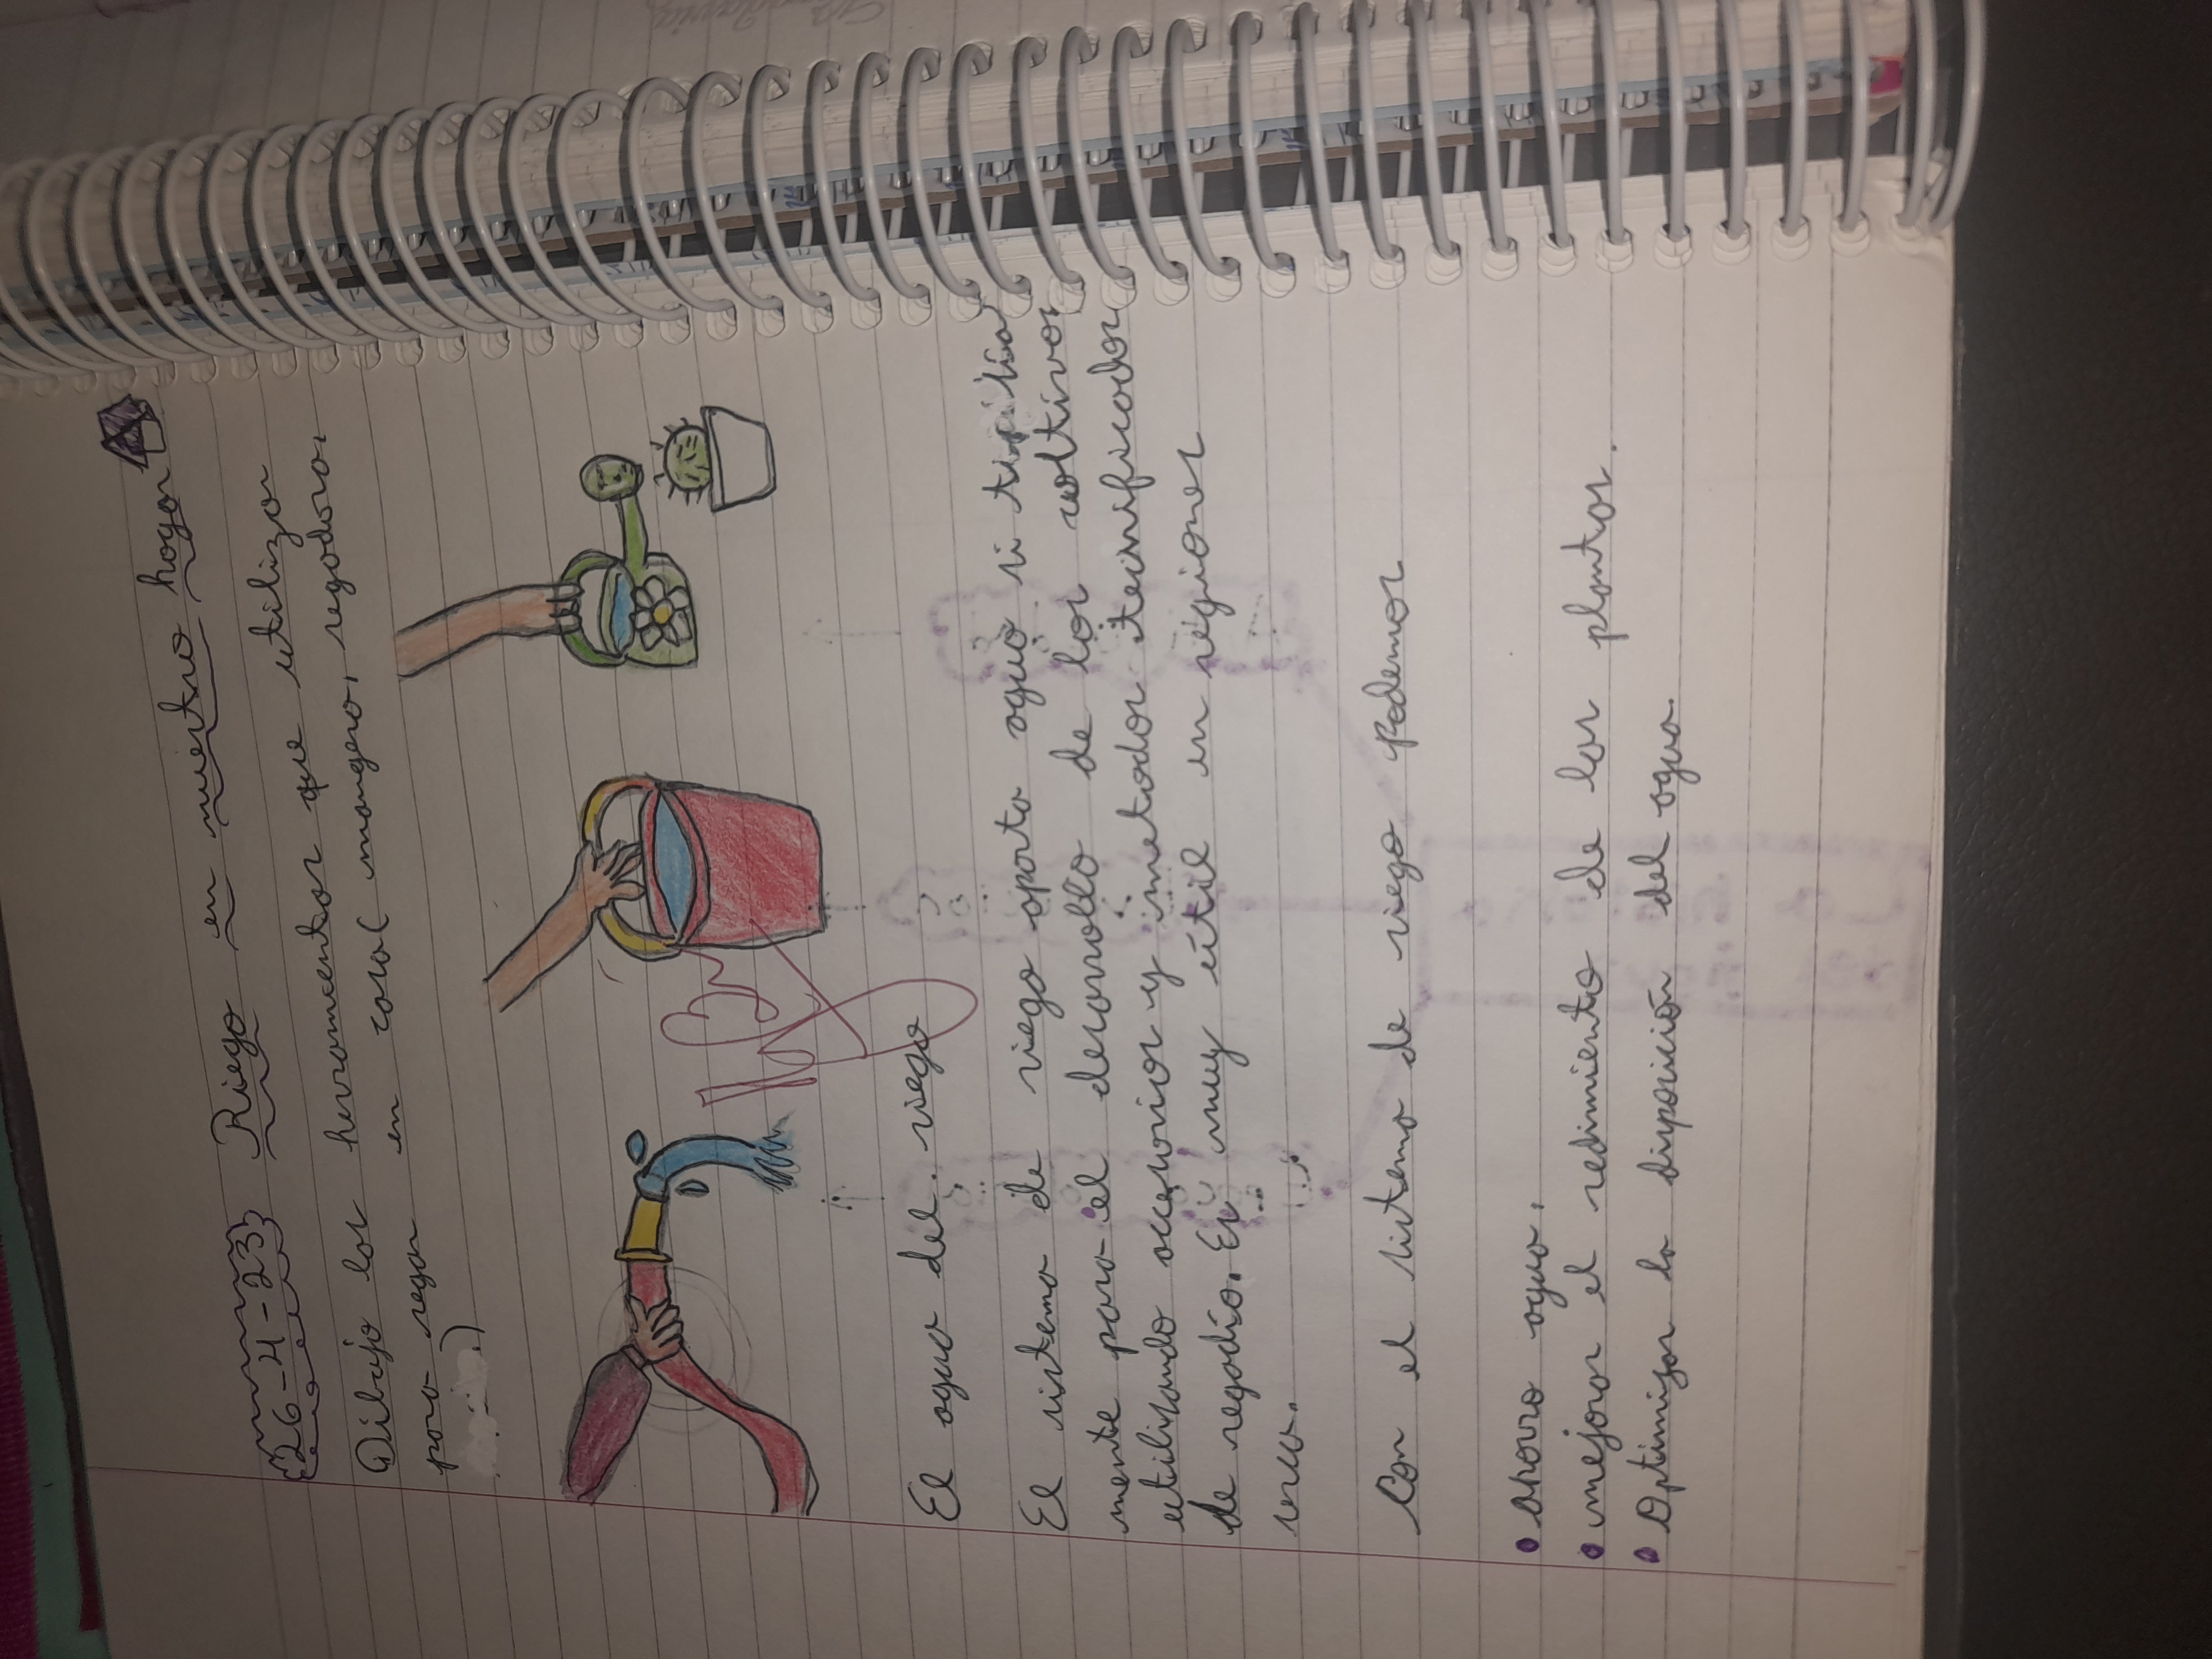 26-4-23 Riego en nuestro hogar
Dibujo las herramientas que utilizo
para regar en casa (manguera, regadora,
)
MB
El agua del riego
El sistema de riego aporta agua
mente para el desarrollo de los cultivos
utilizando accesorios y metodos tecnificados
de regadío. Es muy útil en regiones
seca.
Con el sistema de riego podemos
• Ahorro agua.
• mejorar el redimiento de las plantas.
• Optimizar la disposición del agua.